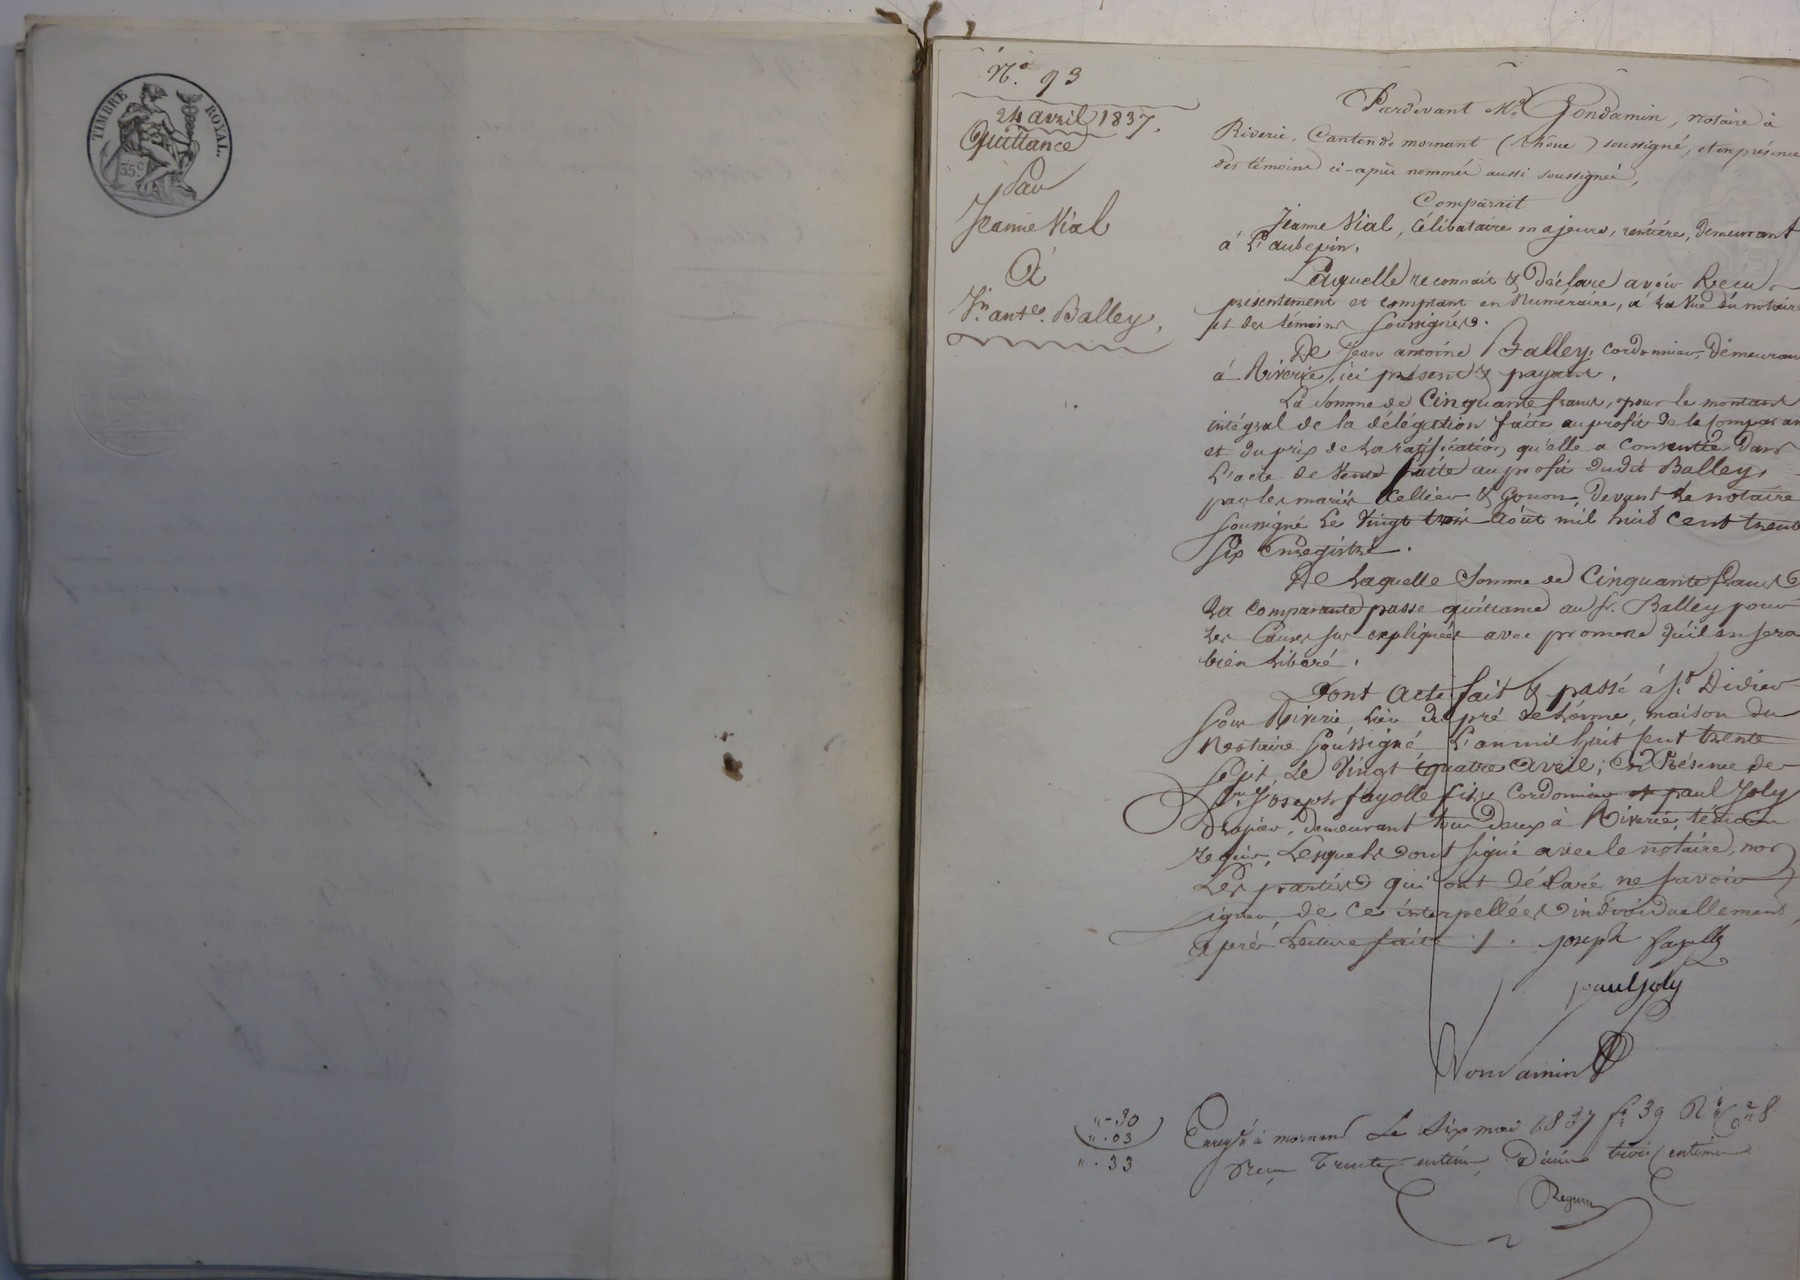 TIMBRE ROYAL.
35 c
N.° 93
24 avril 1837.
Quittance
par
Jeanne Vial
à
Jn. ante. Balley.
Pardevant Me. Gondamin, notaire à
Riverie, Canton de mornant (Rhône) soussigné, et en présence
des témoins ci-après nommés aussi soussignés,
Comparait
Jeanne Vial, Célibataire majeure, rentière, demeurant
à L'aubepin.
Laquelle reconnait & déclare avoir Reçu
présentement et comptant en Numéraire, à la vue du notaire
et des témoins soussignés.
De Jean antoine Balley, cordonnier, demeurant
à Riverie, ici présent & payant.
La Somme de Cinquante francs, pour le montant
intégral de la délégation faite au profit de la Comparante
et du prix de la ratification qu'elle a Consentie dans
L'acte de Vente faite au profit dudit Balley,
par les mariés Cellier & Gonon, devant Le notaire
soussigné Le Vingt trois août mil huit Cent trente
six Enregistré.
De Laquelle Somme de Cinquante francs
La Comparante passe quittance au sr. Balley pour
Les Causes sus expliquées avec promesse qu'il en sera
bien Libéré.
Dont Acte fait & passé à St. Didier
sous Riverie Lieu du pré de Lorme, maison du
Notaire soussigné, L'an mil huit Cent trente
sept, Le Vingt quatre avril; en Présence de
Joseph fayolle fils, Cordonnier et paul Joly
Drapier, demeurant tous deux à Riverie, témoins
requis, Lesquels ont signé avec le notaire, non
Les parties qui ont déclaré ne savoir
signer, de ce interpellées individuellement,
après Lecture faite ./.
joseph fayolle
paul joly
Gondamin
" - 30
" . 03
" . 33
Enregé. à mornant Le Six mai 1837 f° 39 R° Ce 8
Reçu Trente centimes, Dixième trois centimes